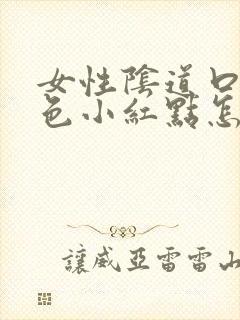 女性陰道口
色小紅點怎
讓威亞雷雷山